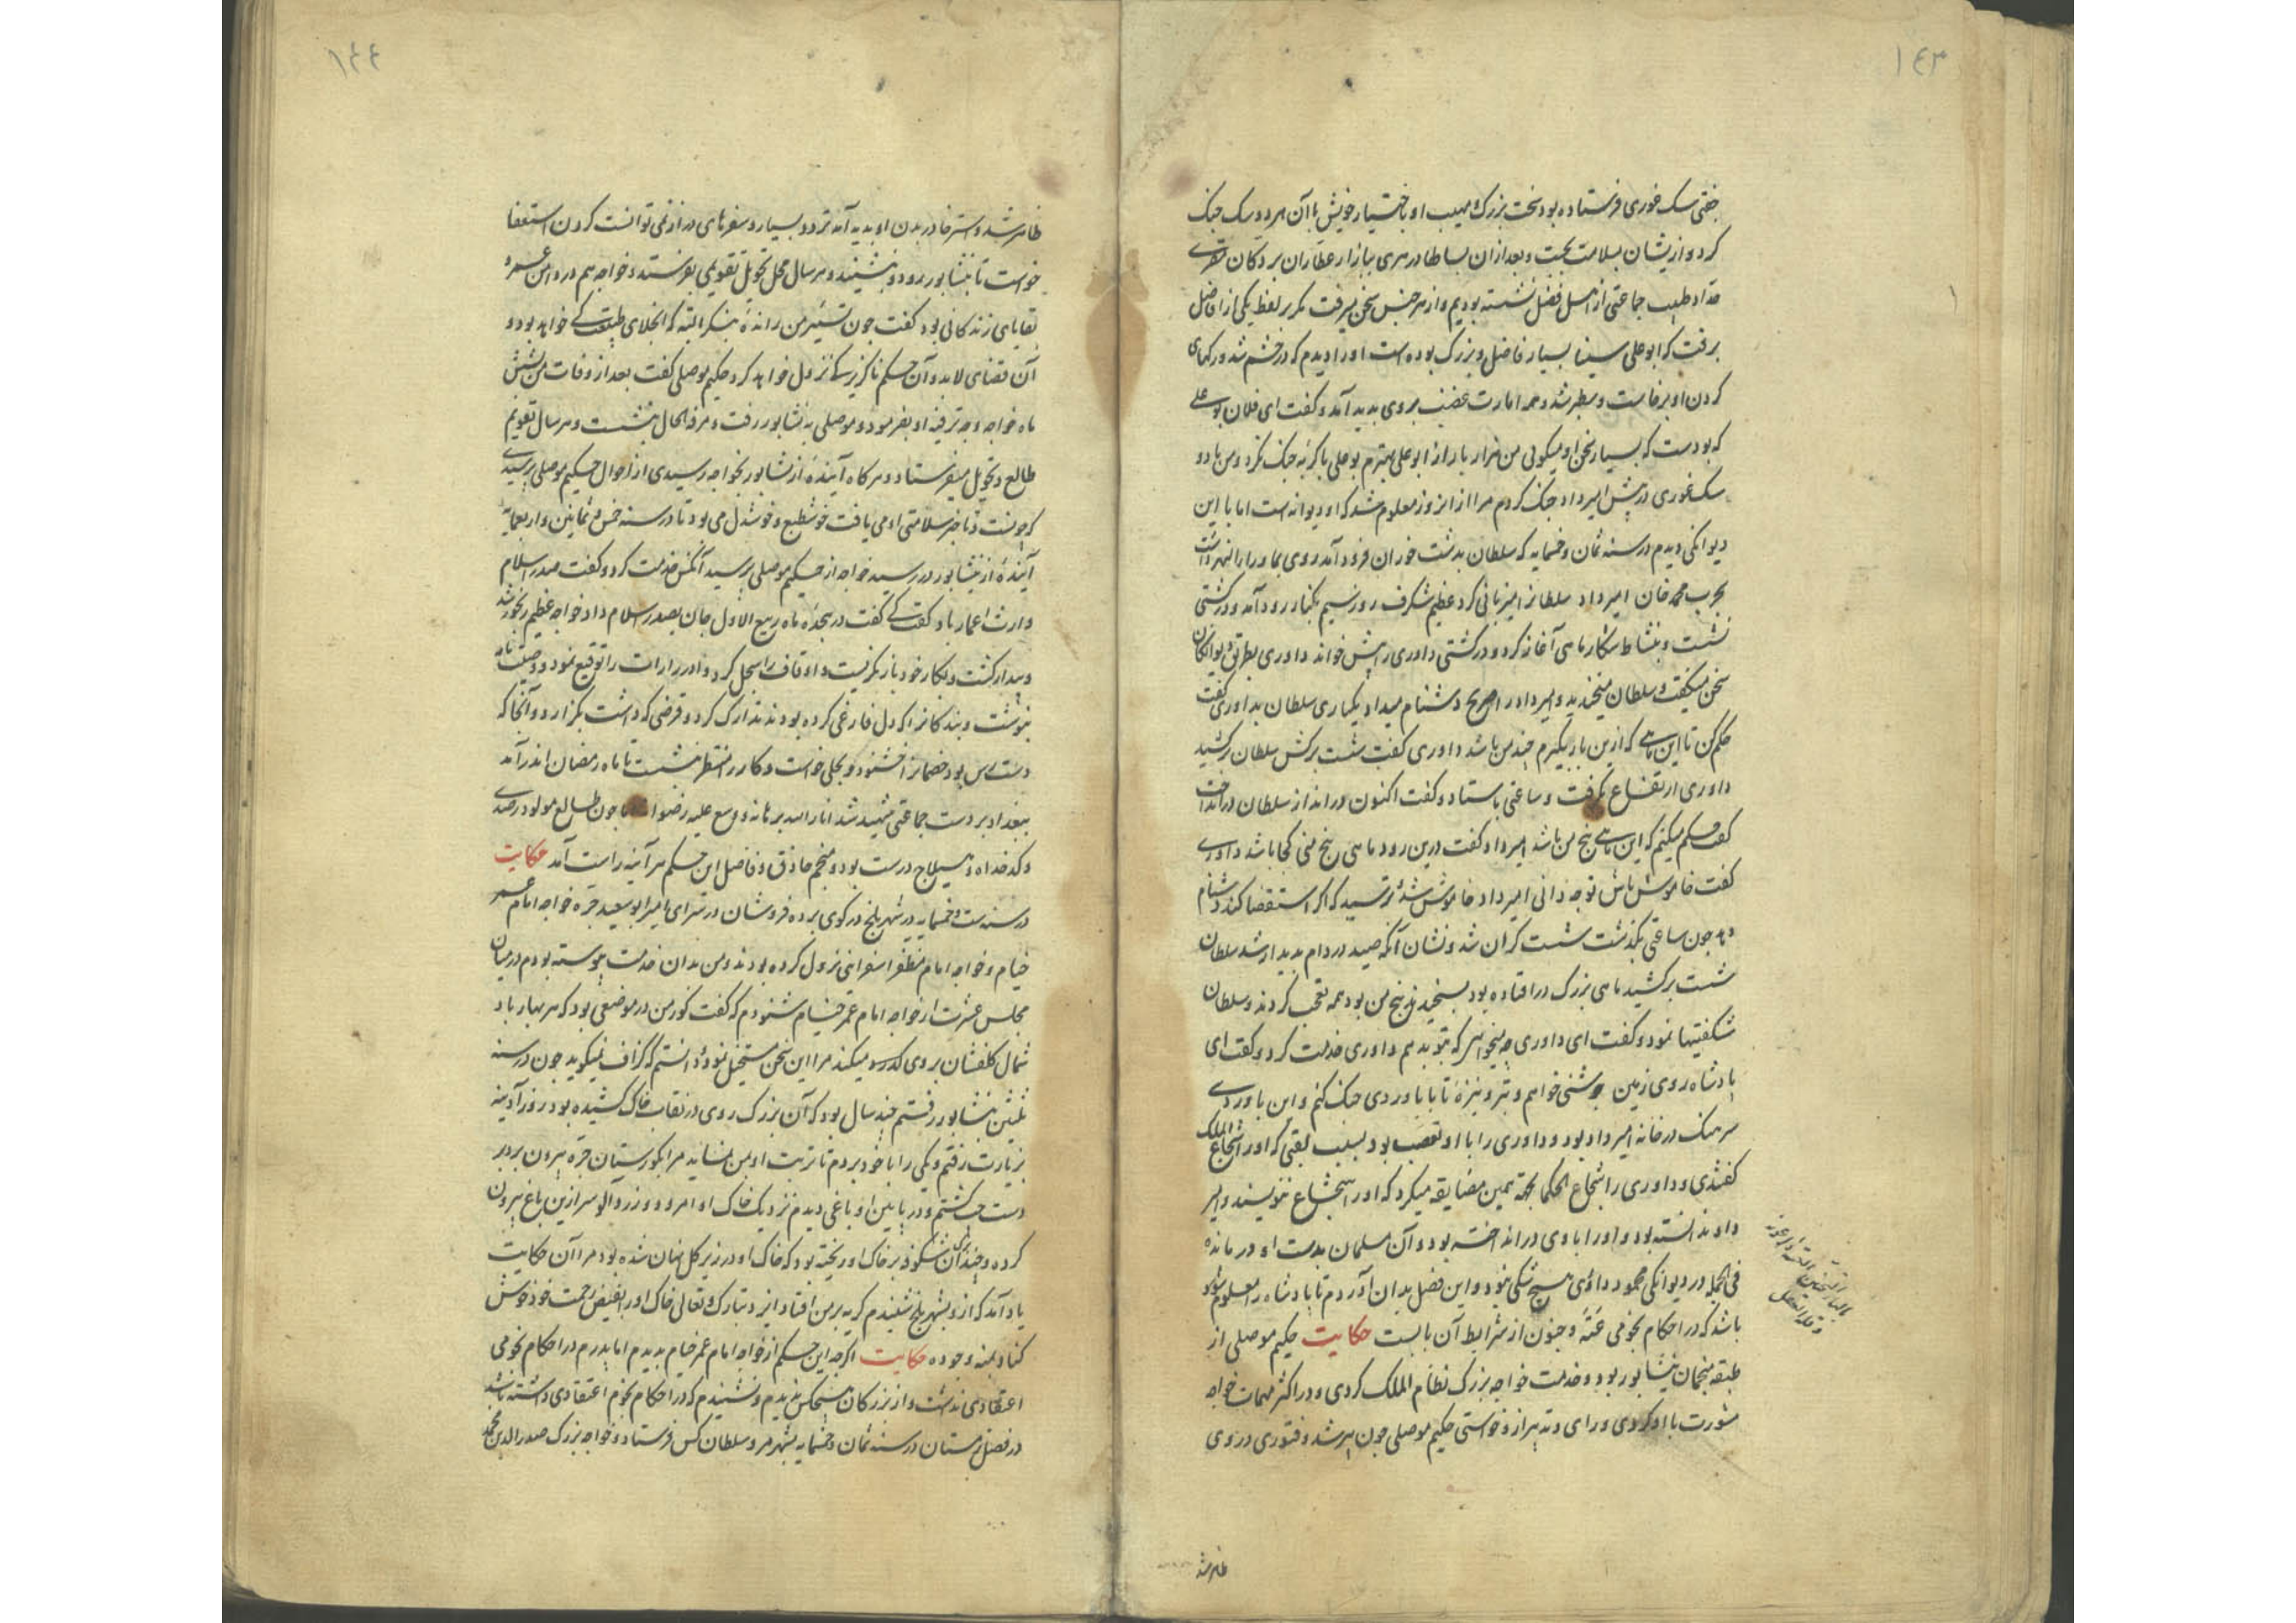 ١٤٣
جفتی سک غوری فرستاده بود سخت بزرک و مهیب او باختیار خویش با آن هر دو سک جنک
کرد و ازیشان بسلامت بجست و بعد از ان بسالها در هری ببازار عطاران بر دکان مقری
حداد طبیب جماعتی از اهل فضل نشسته بودیم و از هر جنس سخن میرفت مکر بر لفظ یکی از افاضل
برفت که ابو علی سینا بسیار فاضل و بزرک بوده است او را دیدم که در خشم شد و رکهای
کردن او برخاست و سطبر شد و همه امارت غضب بروی بدید آمد و کفت ای فلان بو علی
که بودست که بسیار سخن او میکوئی من هزار بار از ابو علی بهترم بو علی با کربه جنک نکرد و من با دو
سک غوری در پیش امیر داد جنک کردم مرا از انروز معلوم شد که او دیوانه است اما با این
دیوانکی دیدم در سنه ثمان و خمسمایه که سلطان بدشت خوزان فرود آمد و روی بماورا النهر داشت
بحرب محمد خان امیر داد سلطانرا میزبانی کرد عظیم شکرف روز سیم بکنار رود آمد و در کشتی
نشست و بنشاط شکار ماهی آغاز کرد و در کشتی داوری را پیش خواند داوری بطریق دیوانکان
سخن میکفت و سلطان میخندید و امیر داد را صریح دشنام میداد یکباری سلطان بداوری کفت
حکم کن تا این ماهی که ازین بار بکیرم چند من باشد داوری کفت شست برکش سلطان برکشید
داوری ارتفاع بکرفت و ساعتی باستاد و کفت اکنون در انداز سلطان در انداخت
کفت حکم میکنم که این ماهی پنج من باشد امیر داد کفت درین رود ماهی پنج منی کجا باشد داوری
کفت خاموش باش تو چه دانی امیر داد خاموش شد ترسید که اکر استقصا کند دشنام
دهد چون ساعتی بکذشت شست کران شد و نشان آنکه صید در دام بدیدار شد سلطان
شست برکشید ماهی بزرک در افتاده بود بسنجیدند پنج من بود همه تعجب کردند و سلطان
شکفتیها نمود و کفت ای داوری چه میخواهی که بتو بدهم داوری خدمت کرد و کفت ای
پادشاه روی زمین جوشنی خواهم و تیر و نیزۀ تا با باوردی جنک کنم و این باوردی
سرهنک در خانه امیر داد بود و داوری را با او تعصب بود بسبب لقبی که او را شجاع الملک
کفتندی و داوری را شجاع الحکما بجهة همین مضایقه میکرد که او را شجاع ننویسند و امیر
داد بدانسته بود و او را با وی در انداخته بود و آن مسلمان بدست او در مانده
فی الجمله در دیوانکی محمود داودی هیچ شکی نبود و این فصل بدان آوردم تا پادشاه را معلوم شود
باشد که در احکام نجومی عته و جنون از شرایط آن بابست حکایت حکیم موصلی از
طبقه منجمان نیشابور بود و خدمت خواجه بزرک نظام الملک کردی و در اکثر مهمات خواجه
مشورت با او کردی و رای و تدبیر ازو خواستی حکیم موصلی چون پیر شد و فتوری در وی
ظاهر شد
١٤٤
ظاهر شد و استرخا در بدن او بدید آمد تردد بسیار و سفرهای دراز نمی توانست کردن استعفا
خواست تا بنیشابور رود و بنشیند و هر سال محل تحویل تقویمی بفرستد و خواجه هم در دامن عمر و
بقایای زندکانی بود کفت چون تسییر من راندۀ بنکر البته که انحلال طبیعت کی خواهد بود و
آن قضای لابد و آن حکم ناکزیر کی نزول خواهد کرد حکیم موصلی کفت بعد از وفات من بشش
ماه خواجه وجه ترفیه او بفرمود و موصلی به نشابور رفت و مرفه الحال بنشست و هر سال تقویم
طالع و تحویل میفرستاد و هر کاه آیندۀ از نشابور بخواجه رسیدی از احوال حکیم موصلی پرسیدی
که چونست و تا خبر سلامتی او می یافت خوشطبع و خوشدل می بود تا در سنه خمس و ثمانین و اربعمایة
آیندۀ از نیشابور در رسید خواجه از حکیم موصلی پرسید آنکس خدمت کرد و کفت صدر اسلام
وارث اعمار باد کفت کی کفت در هجدۀ ماه ربیع الاول جان بصدر اسلام داد خواجه عظیم رنجور شد
و بیدار کشت و بکار خود باز نکریست و اوقاف را سجل کرد و ادرارات را توقیع نمود و وصیت نامه
بنوشت و بندکانرا که دل فارغی کرده بودند تدارک کرد و قرضی که داشت بکزارد و آنجا که
دست رس بود خصمانرا خشنود و بحلی خواست و کار را منتظر بنشست تا ماه رمضان اندر آمد
ببغداد بر دست جماعتی شهید شد انار الله برهانه و وسع علیه رضوانه اما چون طالع مولود رصدی
و کدخداه و هیلاج درست بود و منجم حاذق و فاضل این حکم هر آینه راست آمد حکایت
در سنه ست و خمسمایه در شهر بلخ در کوی برده فروشان در سرای امیر ابو سعید جره خواجه امام عمر
خیام و خواجه امام مظفر اسفزاینی نزول کرده بودند و من بدان خدمت پیوسته بودم در میان
مجلس عشرت از خواجه امام عمر خیام شنودم که کفت کور من در موضعی بود که هر بهار باد
شمال کلفشان بروی میکند مرا این سخن مستحیل نمود و دانستم که کزاف نمیکوید چون در سنه
ثلثین بنشابور رفتم چند سال بود که آن بزرک روی در نقاب خاک کشیده بود روز آدینه
بزیارت رفتم و یکی را با خود بردم تا تربت او بمن نماید مرا بکورستان حره بیرون برد بر
دست چپ کشتم و در پایین او باغی دیدم نزدیک خاک او امرود و زرد آلو سر ازین باغ بیرون
کرده و چندان شکوفه بر خاک او ریخته بود که خاک او در زیر کل پنهان شده بود مرا آن حکایت
یاد آمد که ازو بشهر بلخ شنیدم کریه بر من افتاد ایزد تبارک و تعالی خاک او را بفیض رحمت خود خوش
کناد بمنه و جوده حکایت اکرچه این حکم از خواجه امام عمر خیام بدیدم اما بدرم در احکام نجومی
اعتقادی نداشت و از بزرکان هیچکس ندیدم و نشنیدم که در احکام نجوم اعتقادی داشته باشد
در فصل زمستان در سنه ثمان و خمسمایه بشهر مرو سلطان کس فرستاد و خواجه بزرک صدر الدین محمد